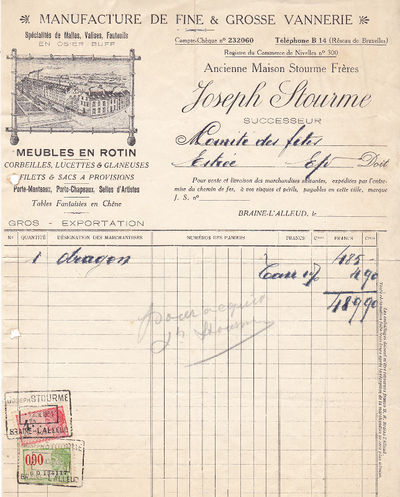 MANUFACTURE DE FINE & GROSSE VANNERIE
Spécialités de Malles, Valises, Fauteuils
EN OSIER BUFF
Compte-Chèque n° 232060 Téléphone B 14 (Réseau de Bruxelles)
Registre du Commerce de Nivelles n° 300
Ancienne Maison Stourme Frères
Joseph Stourme
SUCCESSEUR
MEUBLES EN ROTIN
CORBEILLES, LUCETTES & GLANEUSES
FILETS & SACS A PROVISIONS
Porte-Manteaux, Porte-Chapeaux, Selles d'Artistes
Tables Fantaisies en Chêne
GROS - EXPORTATION
Comité des fêtes
Doit
Pour vente et livraison des marchandises suivantes, expédiées par l'entremise du chemin de fer, à vos risques et périls, payables en cette ville, marque
J. S. n°
BRAINE-L'ALLEUD, le
N° QUANTITÉ DÉSIGNATION DES MARCHANDISES NUMÉROS DES PANIERS FRANCS Cmes FRANCS Cmes
1 dragon 485 -
Taxe 1% 4 90
489 90
Pour acquit
Js Stourme
Joseph STOURME
BRAINE-L'ALLEUD
STOURME
0,90
BRAINE-L'ALLEUD